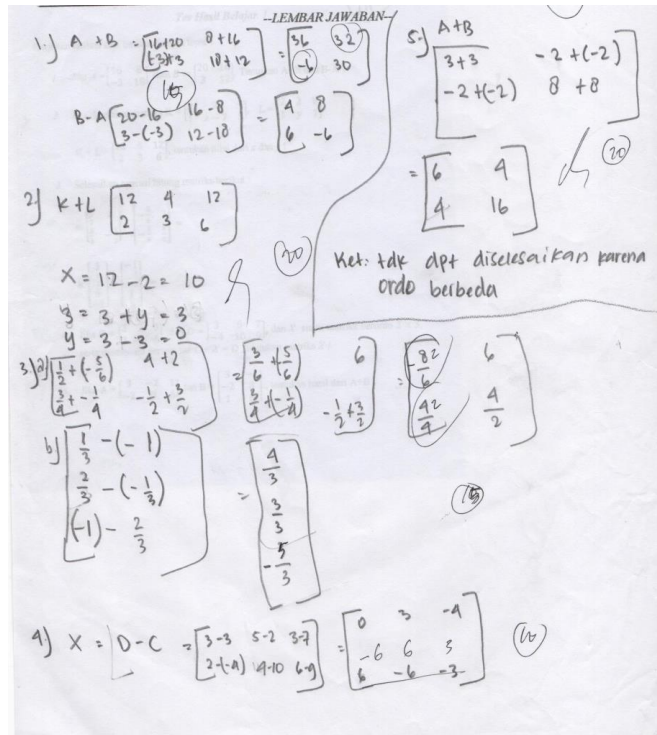 --LEMBAR JAWABAN--
1.) A + B = [16+20 8+16 = [36 32
(-3)+3 18+12] -6 30]
15
B-A [20-16 16-8 = [4 8
3-(-3) 12-18] 6 -6]
2) K+L [12 4 12
2 3 6]
X = 12 - 2 = 10
3 = 3 + y = 3
y = 3 - 3 = 0
20
3.) a) [1/2 + (-5/6) 4+2 = [3/6 + (5/6) 6 = [-82/6 6
3/4 + -1/4 -1/2 + 3/2] 3/4 + (-1/4) -1/2 + 3/2] 42/4 4/2]
b) [1/3 - (-1) = [4/3
2/3 - (-1/3) 3/3
(-1) - 2/3] -5/3]
15
4.) X = D-C = [3-3 5-2 3-7 = [0 3 -4
2-(-4) 4-10 6-9] -6 6 3
6 -6 -3]
10
5.) A+B
[3+3 -2+(-2)
-2+(-2) 8+8]
= [6 4
4 16]
20
Ket: tdk dpt diselesaikan karena
ordo berbeda